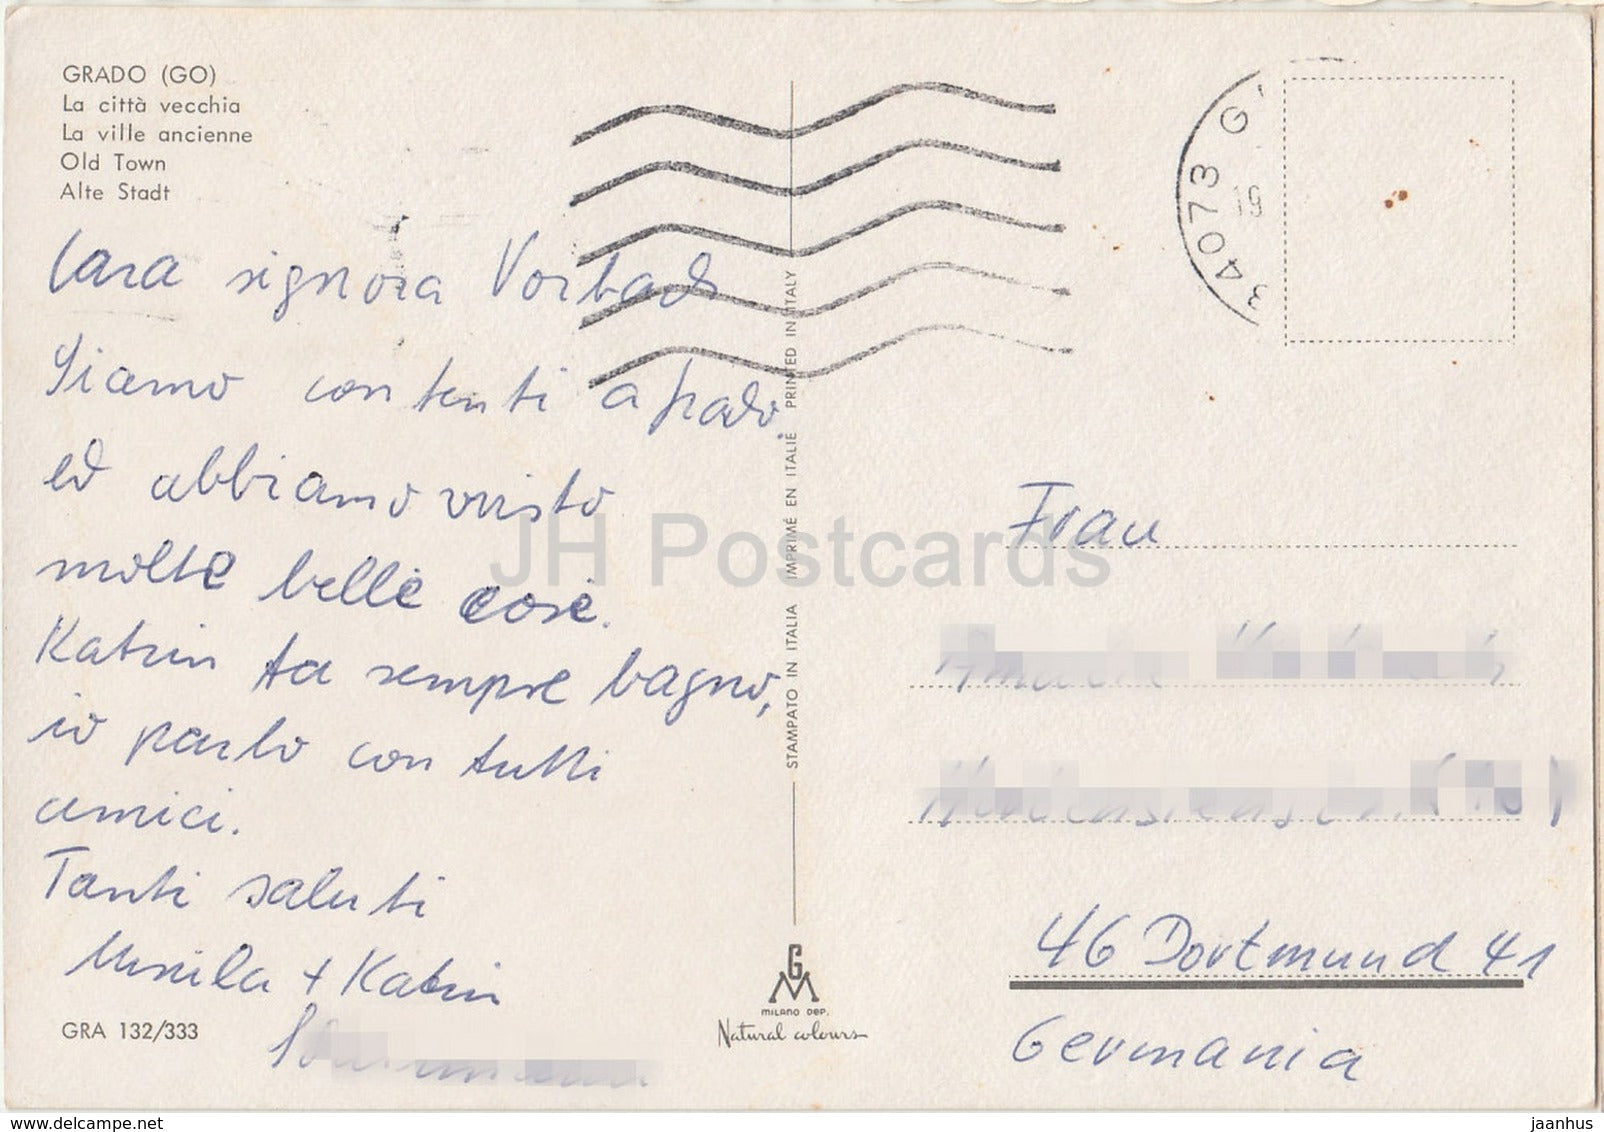 GRADO (GO)
La città vecchia
La ville ancienne
Old Town
Alte Stadt
Cara signora Vorbach
Siamo contenti a Grado.
ed abbiamo visto
molte belle cose.
Katrin fa sempre bagno,
io parlo con tutti
amici.
Tanti saluti
+ Katrin
GRA 132/333
STAMPATO IN ITALIA IMPRIMÉ EN ITALIE PRINTED IN ITALY
GM
MILANO DEP.
Natural colours
34073 G
19
Frau
46 Dortmund 41
Germania
JH Postcards
delcampe.net
jaanhus